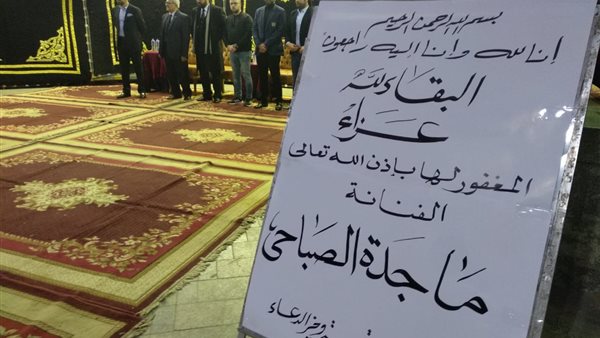 بسم الله الرحمن الرحيم
إنا لله وإنا إليه راجعون
البقاء لله
عزاء
المغفور لها بإذن الله تعالى
الفنانة
ماجدة الصباحى
الدعاء